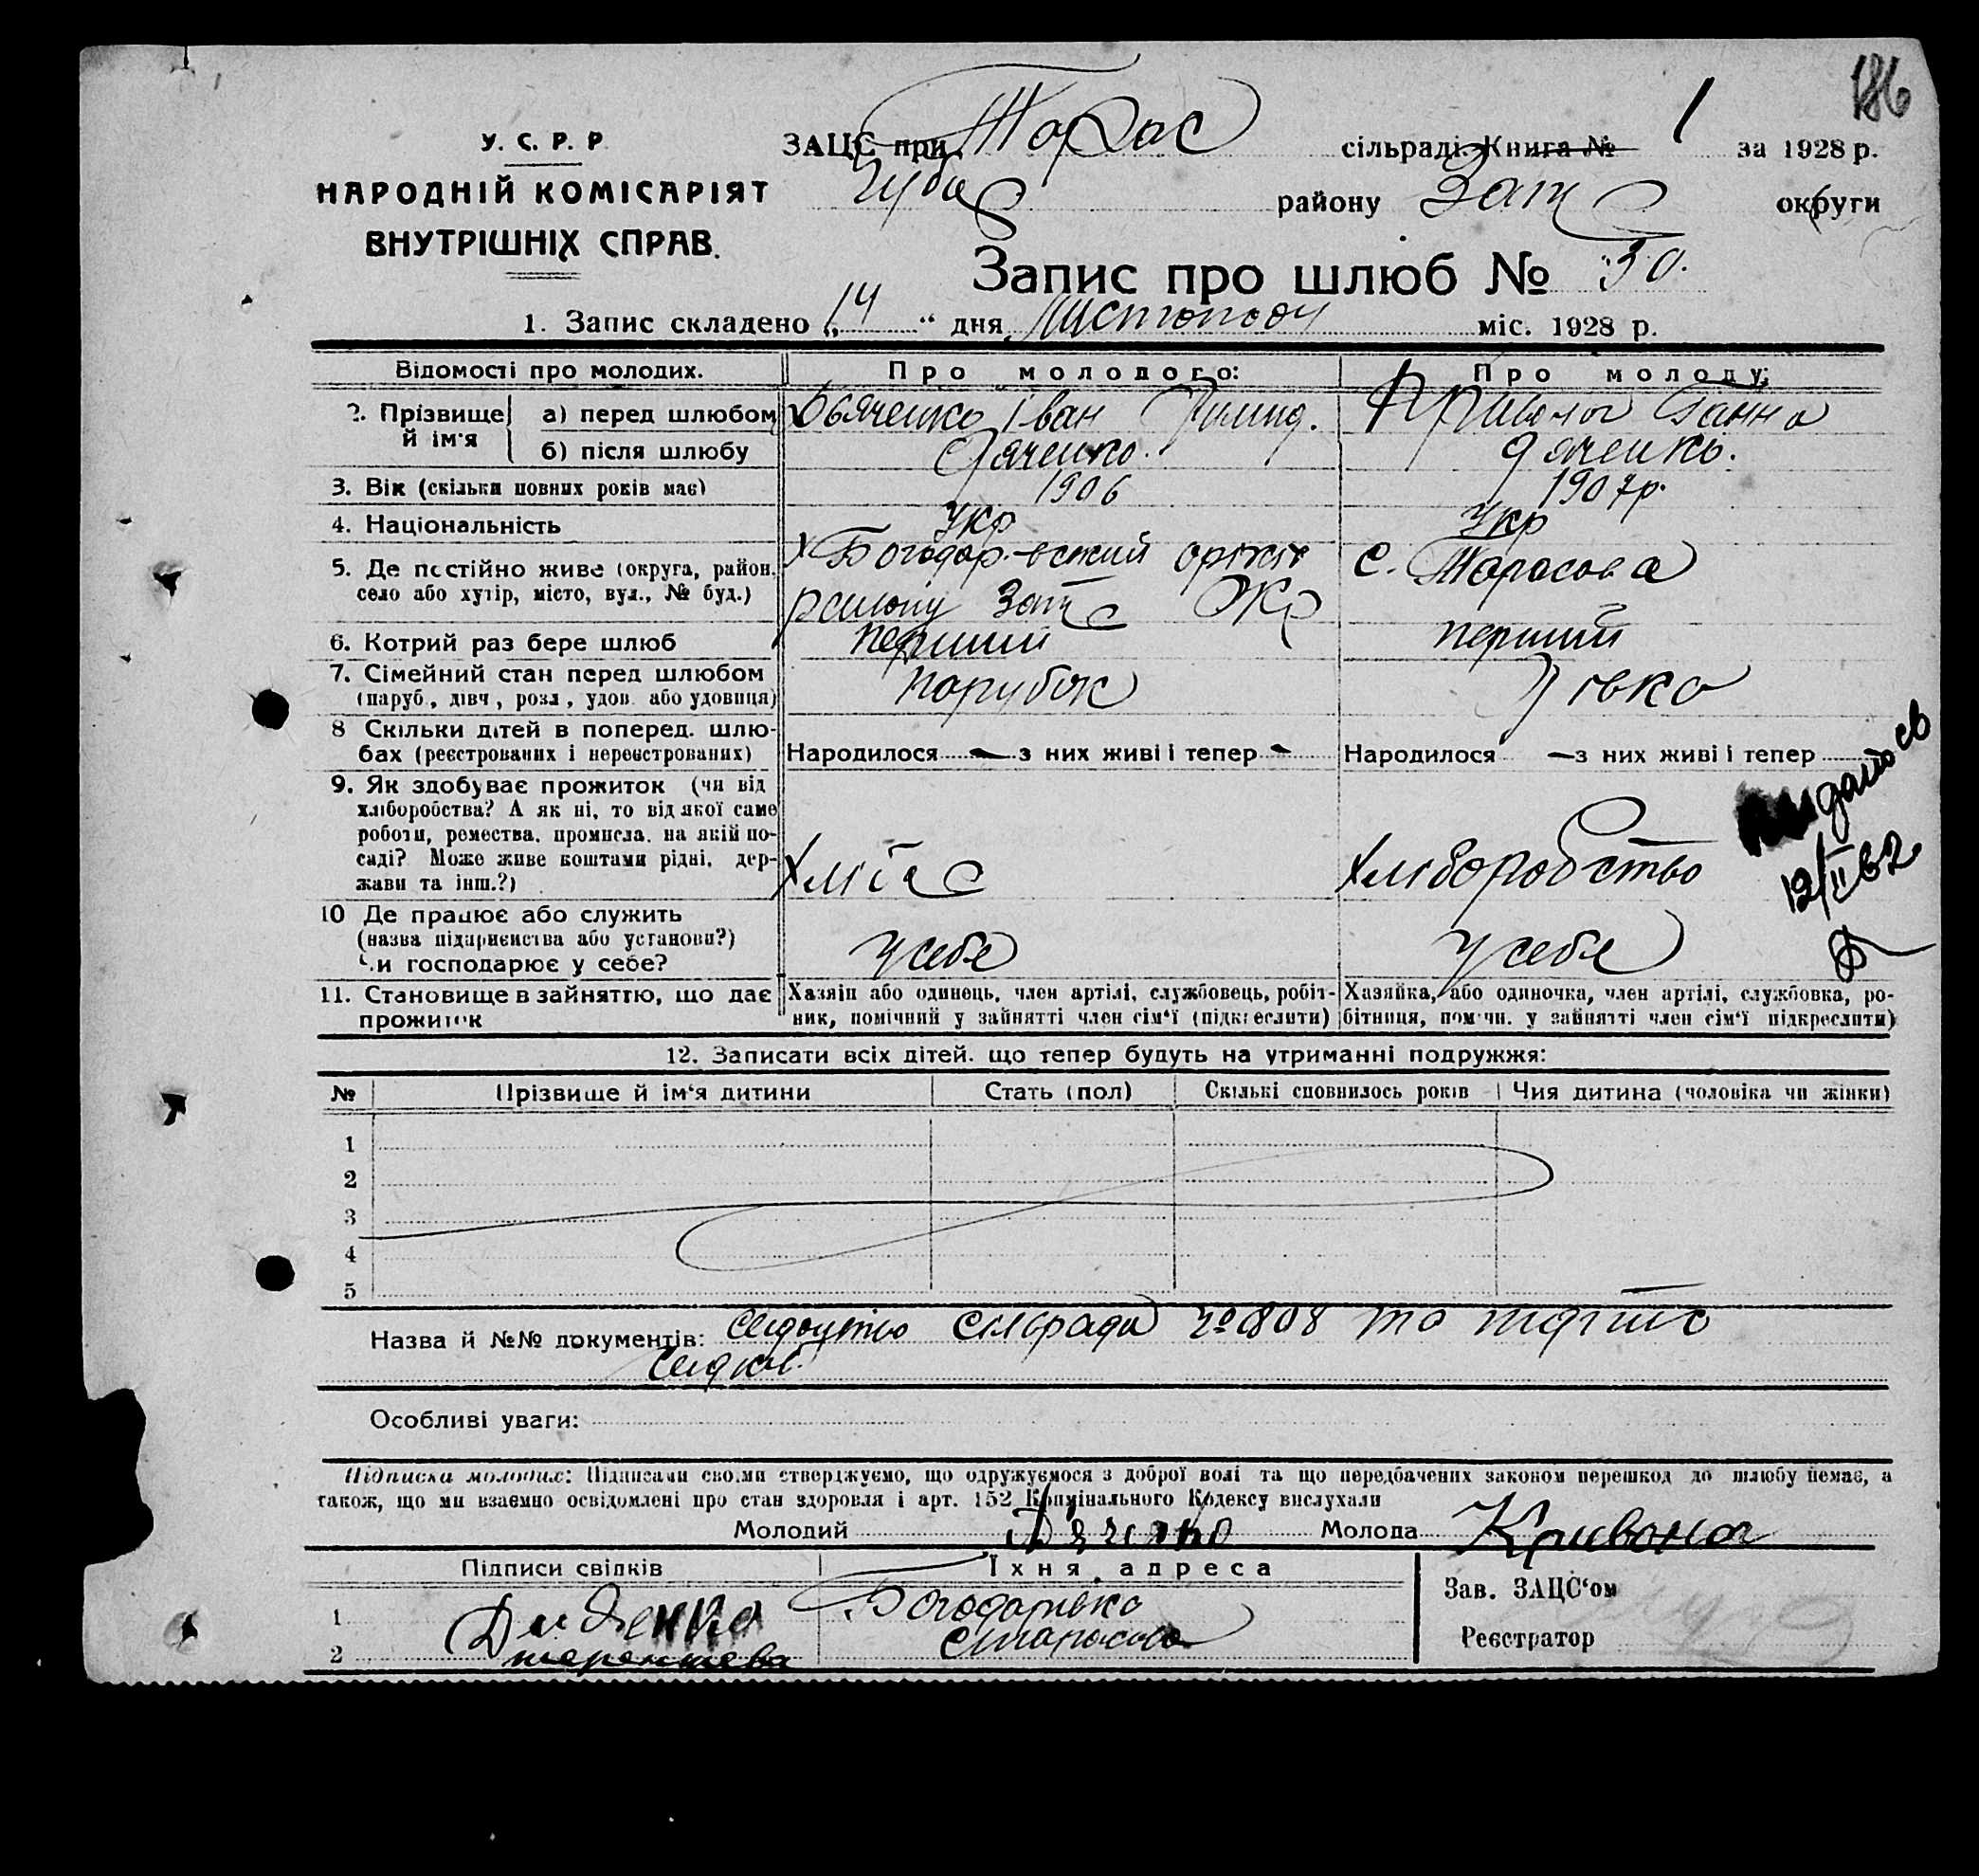 186
У. С. Р. Р
НАРОДНІЙ КОМІСАРІЯТ
ВНУТРІШНІХ СПРАВ.
ЗАЦС при Тарас сільраді Книга № 1 за 1928 р.
району Зап округи
Запис про шлюб № 30.
1. Запис складено „14“ дня Листопаду міс. 1928 р.
Відомості про молодих. Про молодого: Про молоду:
2. Прізвище й ім'я а) перед шлюбом Дьяченко Іван Кривонос Ганна
б) після шлюбу Дяченко. Дяченко.
3. Вік (скільки повних років має) 1906 1907р.
4. Національність Укр Укр
5. Де постійно живе (округа, район, с. Тарасовка
село або хутір, місто, вул., № буд.) району Зап Окр
6. Котрий раз бере шлюб перший перший
7. Сімейний стан перед шлюбом парубок дівка
(паруб., дівч., розл., удов. або удовиця)
8 Скільки дітей в поперед. шлю-
бах (реєстрованих і нереєстрованих) Народилося — з них живі і тепер - Народилося — з них живі і тепер
9. Як здобуває прожиток (чи від
хліборобства? А як ні, то від якої саме
роботи, ремества, промисла, на якій по-
саді? Може живе коштами рідні, дер- хліборобство
жави та інш.?)
12/II 62
10 Де працює або служить
(назва підприємства або установи?) у себе у себе
Чи господарює у себе?
11. Становище в зайняттю, що дає Хазяїн або одинець, член артілі, службовець, робіт- Хазяйка, або одиночка, член артілі, службовка, ро-
прожиток ник, помічний у зайнятті член сім'ї (підкреслити) бітниця, помічн. у зайнятті член сім'ї підкреслити)
12. Записати всіх дітей, що тепер будуть на утриманні подружжя:
№ Прізвище й ім'я дитини Стать (пол) Скількі сповнилось років Чия дитина (чоловіка чи жінки)
1
2
3
4
5
Назва й №№ документів: сільради № 808 та
Особливі уваги:
Підписка молодих: Підписами своїми стверджуємо, що одружуємося з доброї волі та що передбачених законом перешкод до шлюбу немає, а
також, що ми взаємно освідомлені про стан здоровля і арт. 152 Кримінального Кодексу вислухали
Молодий Дяченко Молода Кривонос
Підписи свідків Їхня адреса
Зав. ЗАЦС'ом
1 Диденко Богодарівка
2 с Тарасовка
Реєстратор